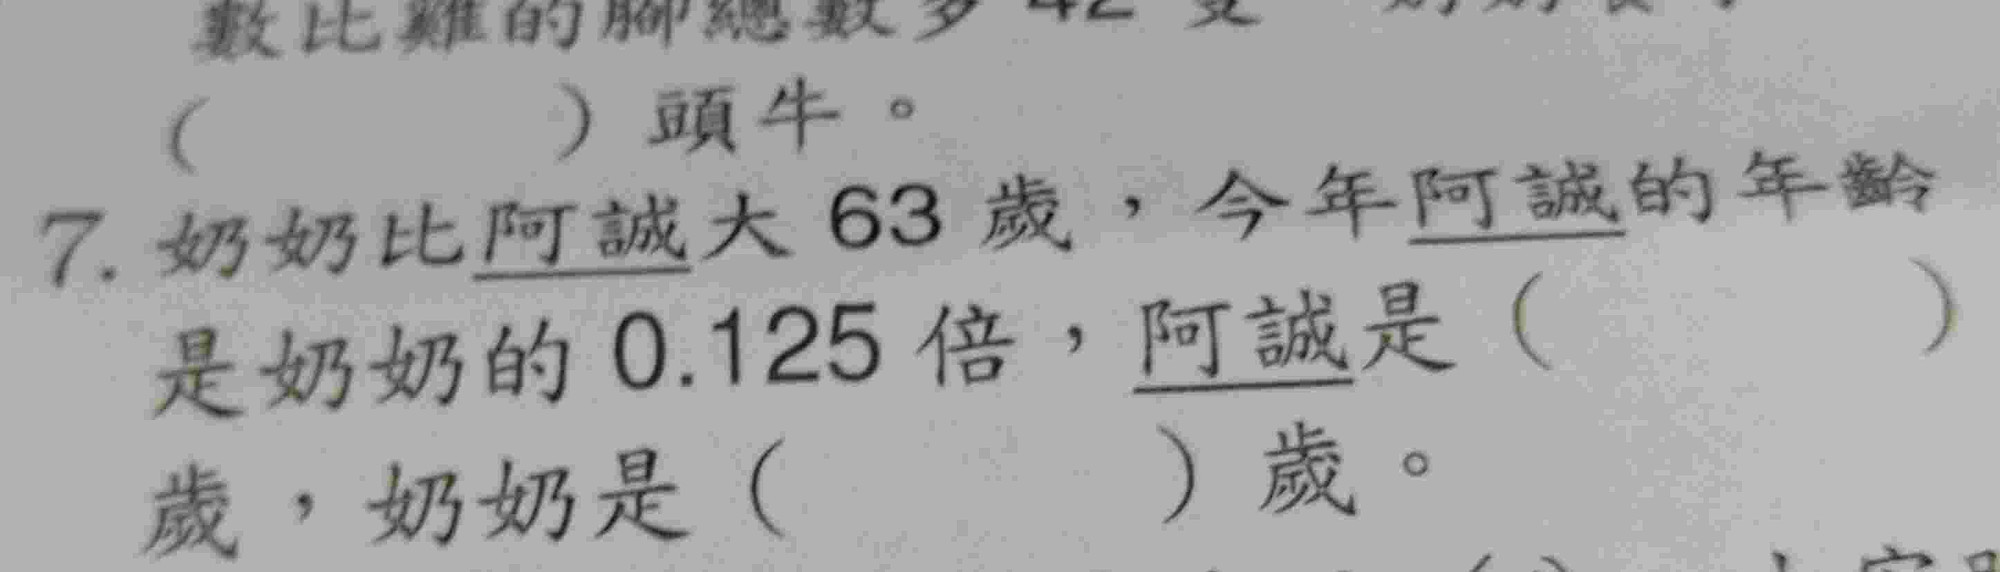 數比雞的腳總數多 42 隻
(　　　) 頭牛。
7. 奶奶比阿誠大 63 歲，今年阿誠的年齡
是奶奶的 0.125 倍，阿誠是 (　　　)
歲，奶奶是 (　　　) 歲。